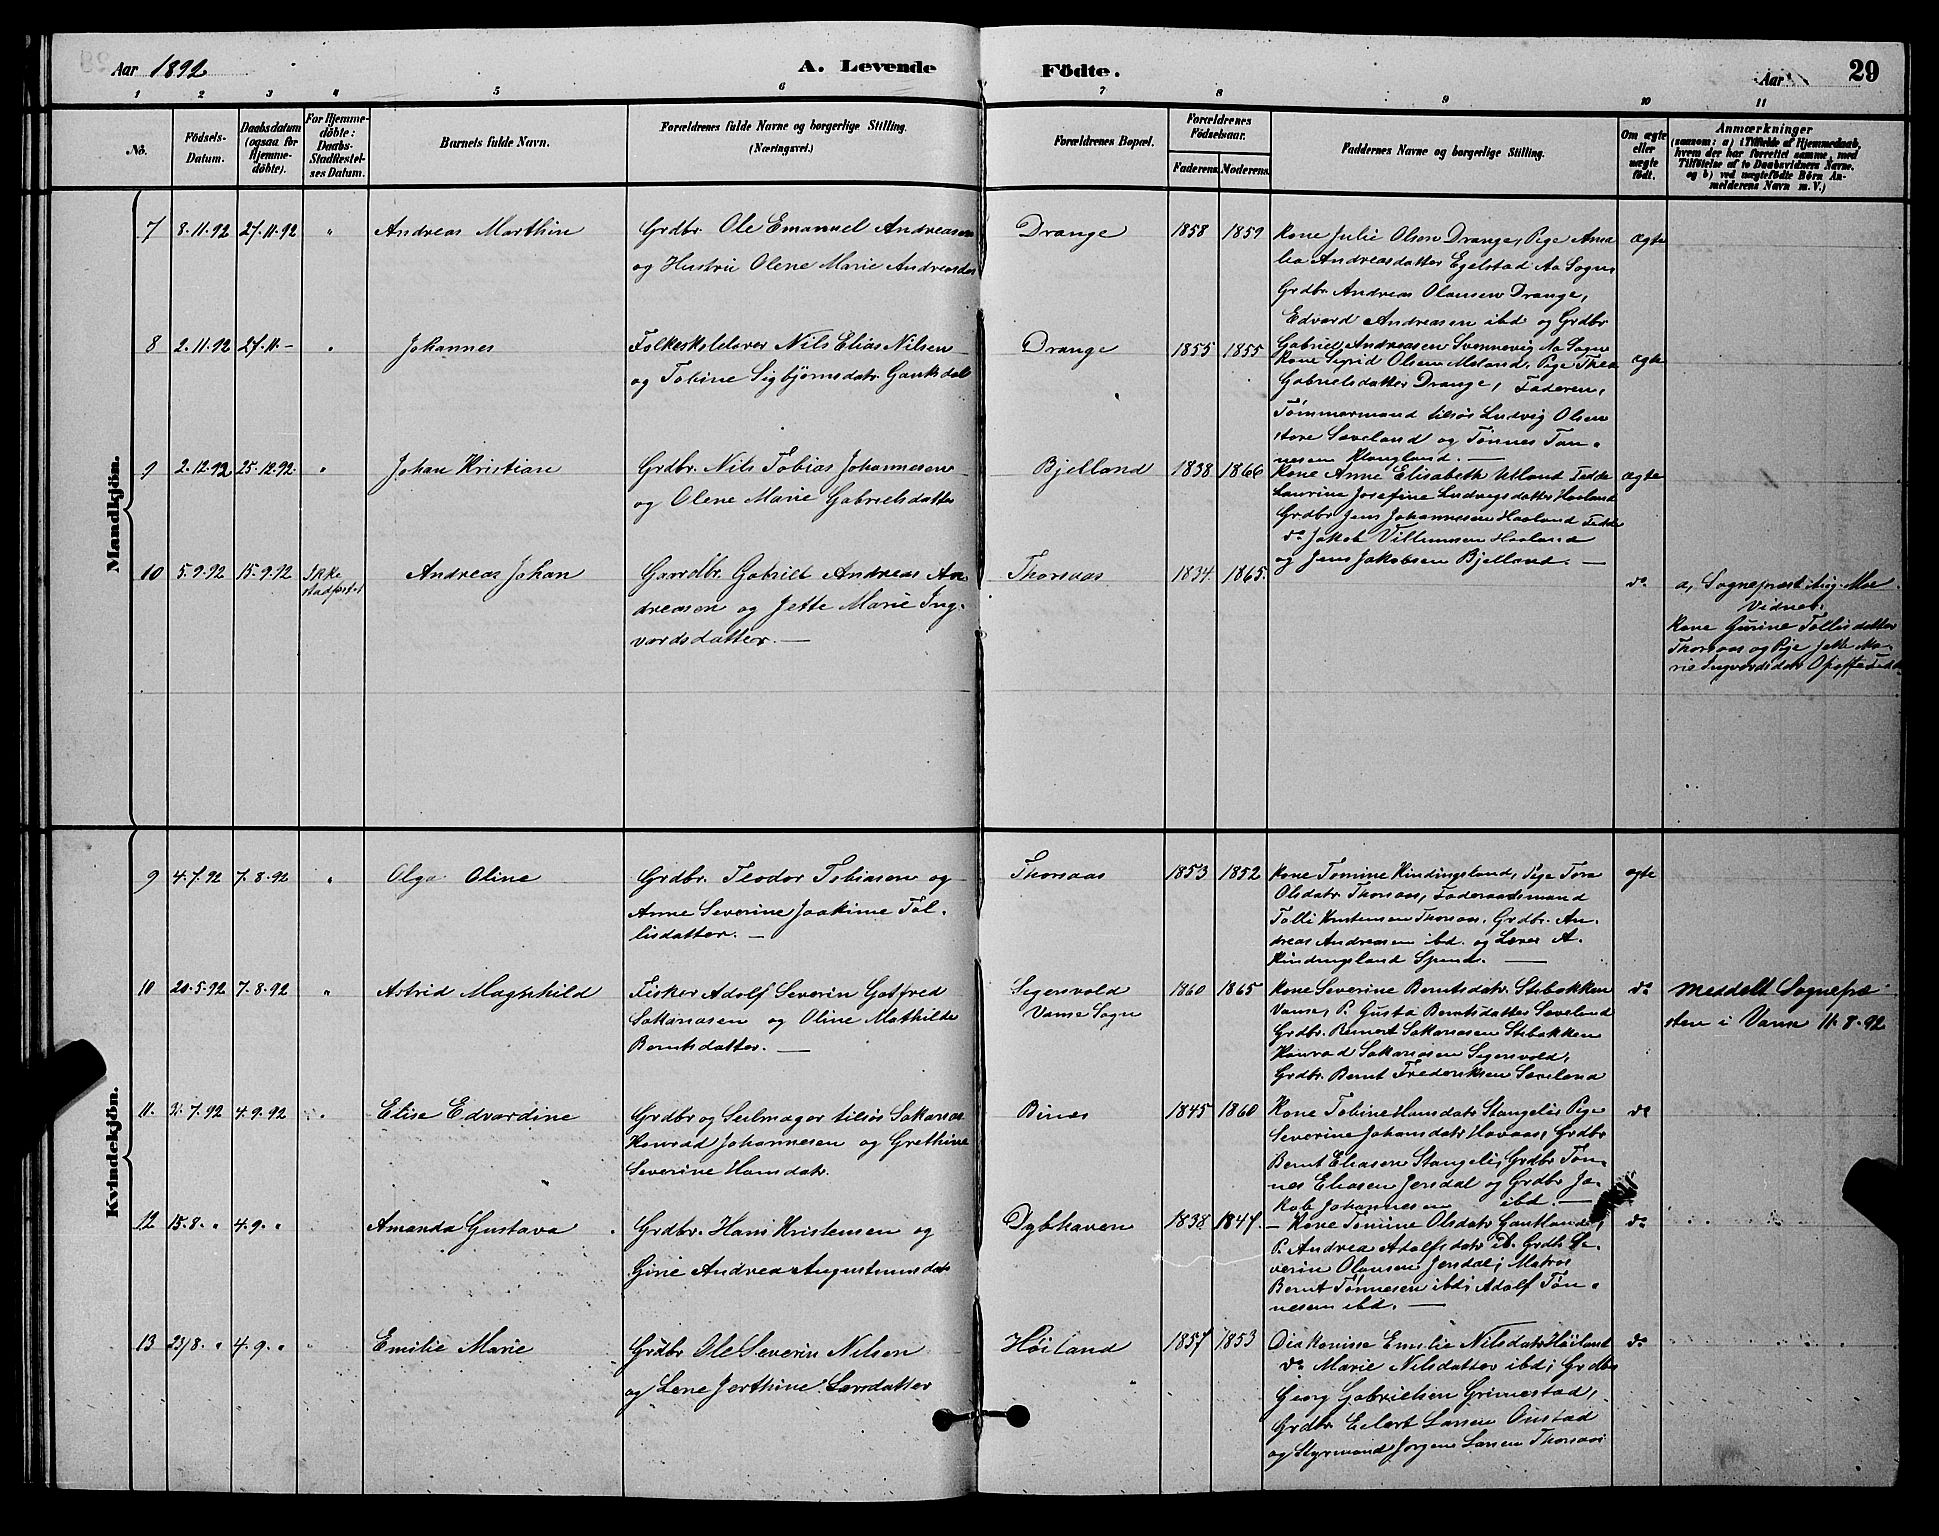 Aar 1892
A. Levende Födte.
Aar
29
1 2 3 4 5 6 7 8 9 10 11
No.
Födsels-Datum.
Daabsdatum (ogsaa for Hjemmedöbte).
For Hjemmedöbte: Daabs-Stadfæstelses Datum.
Barnets fulde Navn.
Forældrenes fulde Navne og borgerlige Stilling. (Næringsvei.)
Forældrenes Bopæl.
Forældrenes Födselsaar.
Faderens. Moderens.
Faddernes Navne og borgerlige Stilling.
Om ægte eller uægte födt.
Anmærkninger
(saasom: a) i Tilfælde af Hjemmedaab, hvem der har forrettet samme, med Tilföielse af to Daabsvidners Navne, og b) ved uægtefödte Börn Anmelderens Navn m. V.)
Mandkjön.
7 8.11.92 27.11.92 " Andreas Marthin
Grdbr. Ole Emanuel Andreasen
og Hustru Olene Marie Andreasdr
Drange 1858 1859
Kone Julie Olsen Drange, Pige Ama
lia Andreasdatter Egelstad Aa Sogn,
Grdbr. Andreas Olausen Drange,
Edvard Andreasen ibd og Grdbr
Gabriel Andreasen Svennevig Aa Sogn
ægte
8 2.11.92 27.11.– " Johannes
Folkeskolelærer Nils Elias Nilsen
og Tobine Sigbjørnsdatr.
Drange 1855 1855
Kone Sigrid Olsen Meland, Pige Thea
Gabrielsdatter Drange, Faderen,
Tømmermand tilsøs Ludvig Olsen
store Sæveland og Tønnes Tøn-
nesen
ægte
9 2.12.92 25.12.92. " Johan Kristian
Grdbr. Nils Tobias Johannesen
og Olene Marie Gabrielsdatter
Bjelland 1838 1866
Kone Anne Elisabeth Utland Fedde
Laurine Josefine Ludvigsdatter Haaland
Grdbr. Jens Johannesen Haaland Fedde
do Jakob Villumsen Haaland
og Jens Jakobsen Bjelland. —
ægte
10 5.9.92 15.9.92 Ikke stadfæstet Andreas Johan
Gaardbr. Gabriel Andreas An-
dreasen og Jette Marie Ing-
vardsdatter. —
Thorsaas 1834. 1865.
do
a, Sogneprest Aug. Moe
Vidner.
Kone Gurine Tollisdatter
Thorsaas og Pige Jette Ma-
rie Ingvardsdatr
Kvindekjön.
9 4.7.92 7.8.92 " Olga Oline
Grdbr. Teodor Tobiasen og
Anne Severine Joakime Tol-
lisdatter. —
Thorsaas 1853 1852
Kone Tomine Kindingsland, Pige Tora
Olsdatr Thorsaas, Føderaadsmand
Tolli Kristensen Thorsaas. Grdbr. An-
dreas Andreasen ibd. og Lærer A.
Kindingsland Spind. —
ægte
10 20.5.92 7.8.92 " Astrid Maghhild
Fisker Adolf Severin Gotfred
Sakariasen og Oline Mathilde
Berntsdatter. —
Sigersvold
Vanse Sogn
1860 1865
Kone Severine Berntsdatr. Stibakken
Vanse, P. Gusta Berntsdatter Sæveland
Grdbr. Reinert Sakariasen Stibakken
Konrad Sakariasen Sigersvold,
Grdbr. Bernt Frederiksen Sæveland
do
meddelt Sognepre
sten i Vanse 11.8.92
11. 31.7.92 4.9.92 " Elise Edvardine
Grdbr og Seilmager tilsøs Sakarias
Konrad Johannesen og Grethine
Severine Hansdatr.
Bines 1845 1860
Kone Tobine Hansdatr Stangeli, Pige
Severine Johansdatr Havaas, Grdbr
Bernt Eliasen Stangeli, Grdbr. Tøn-
nes Eliasen Jersdal og Grdbr Ja-
kob Johannesen ibd —
do
12 15.8. " 4.9. " Amanda Gustava
Grdbr. Hans Kristensen og
Gine Andrea Augustinusdatr
Dybhaven 1838 1847.
– Kone Tomine Olsdatr Gautland,
P. Andrea Adolfsdatr ib. Grdbr Se-
verin Olausen Jersdal; Matros
Bernt Tønnesen ibd; Adolf Tøn-
nesen ibd. —
do
13 23/8. " 4.9. " Emilie Marie
Grdbr Ole Severin Nilsen
og Lene Jorthine Larsdatter
Høiland 1857 1853
Diakonisse Emilie Nilsdatr Høiland
do Marie Nilsdatter ibd; Grdbr
Georg Gabrielsen Grimestad,
Grdbr. Eilert Larsen Ønstad
og Styrmand Jørgen Larsen Thorsaas
do